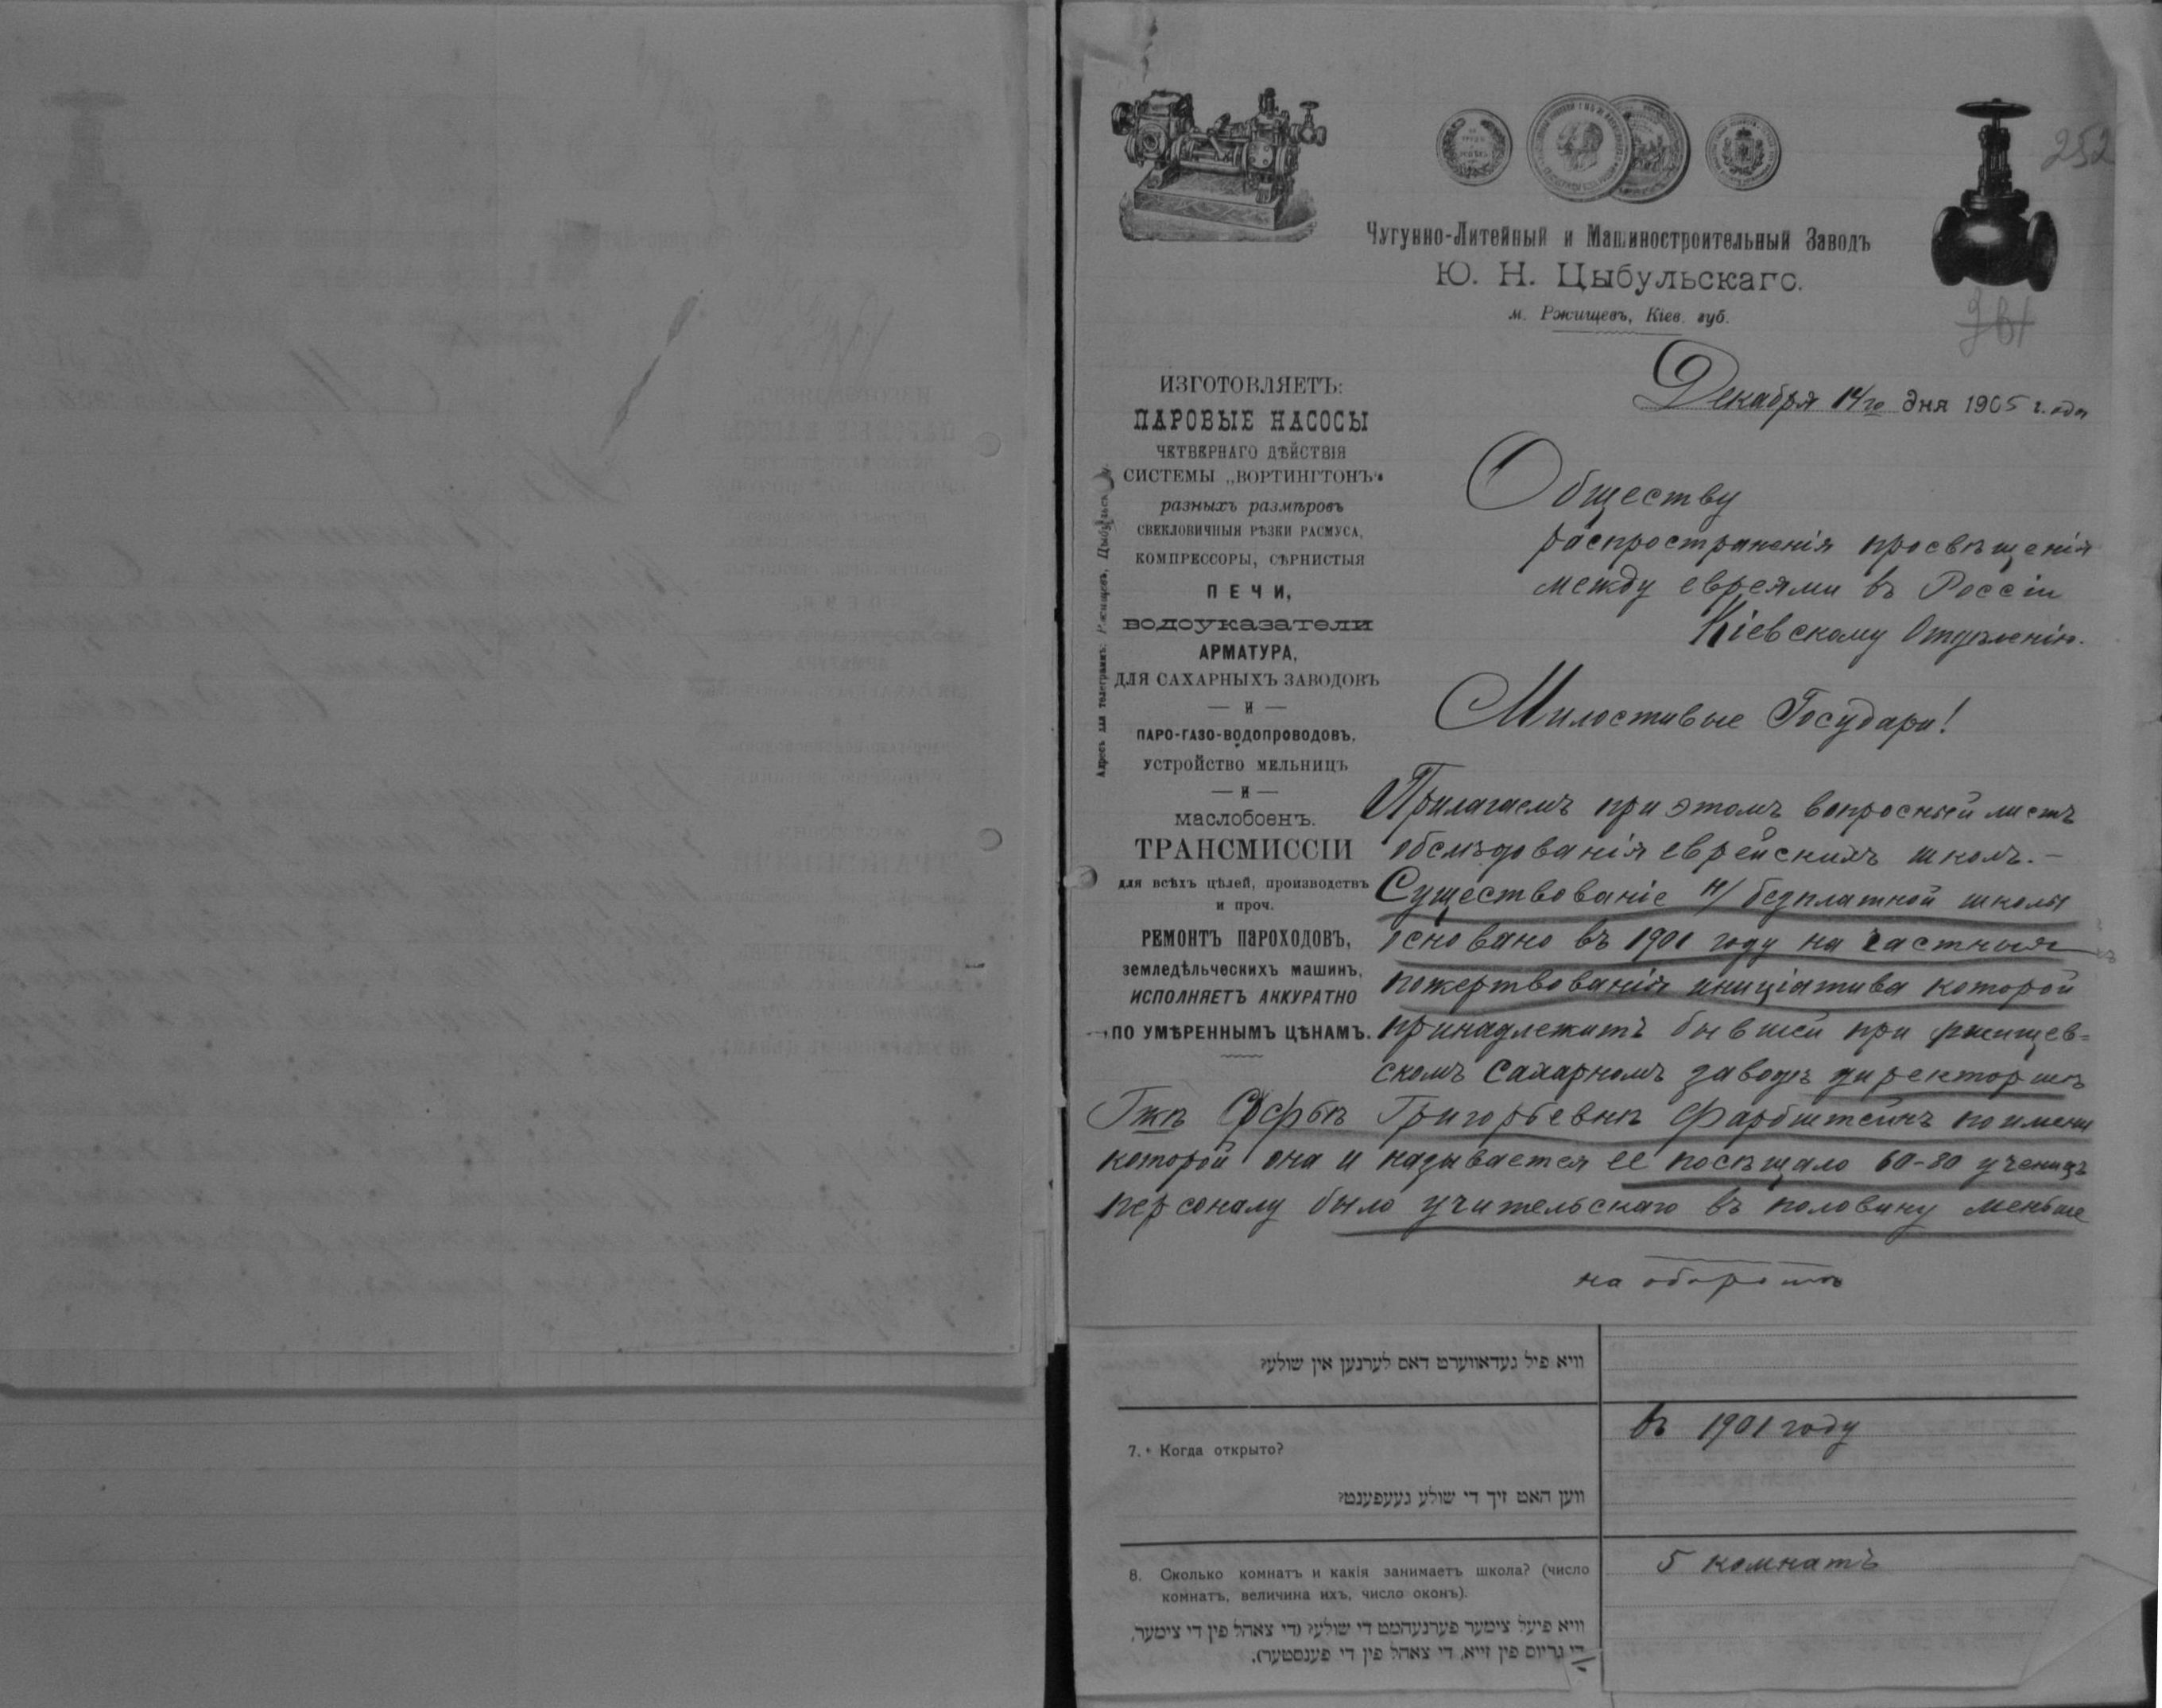 252
Чугунно-Литейный и Машиностроительный Заводъ
Ю. Н. Цыбульскаго.
м. Ржищевъ, Кіев. губ.
Декабря 14го дня 1905 года
ИЗГОТОВЛЯЕТЪ:
ПАРОВЫЕ НАСОСЫ
ЧЕТВЕРНАГО ДѢЙСТВІЯ
СИСТЕМЫ „ВОРТИНГТОНЪ“
разныхъ размѣровъ
СВЕКЛОВИЧНЫЯ РѢЗКИ РАСМУСА,
КОМПРЕССОРЫ, СѢРНИСТЫЯ
ПЕЧИ,
ВОДОУКАЗАТЕЛИ
АРМАТУРА,
ДЛЯ САХАРНЫХЪ ЗАВОДОВЪ
— И —
ПАРО-ГАЗО-ВОДОПРОВОДОВЪ,
УСТРОЙСТВО МЕЛЬНИЦЪ
— И —
МАСЛОБОЕНЪ.
ТРАНСМИССІИ
для всѣхъ цѣлей, производствъ
и проч.
РЕМОНТЪ ПАРОХОДОВЪ,
земледѣльческихъ машинъ,
ИСПОЛНЯЕТЪ АККУРАТНО
ПО УМѢРЕННЫМЪ ЦѢНАМЪ.
Адресъ для телеграммъ: Ржищевъ, Цыбульск
Обществу
распространенія просвѣщенія
между евреями въ Россіи
Кіевскому Отдѣленію.
Милостивые Государи!
Прилагаемъ при этомъ вопросный листъ
обслѣдованія еврейскихъ школъ.—
Существованіе н/ безплатной школы
основано въ 1901 году на частныя
пожертвованія иниціатива которой
принадлежитъ бывшей при ржищев=
скомъ Сахарномъ заводѣ директоршѣ
Гжѣ Софьѣ Григорьевнѣ Фарбштейнъ по имени
которой она и называется ее посѣщало 60-80 ученицъ
персоналу было учительскаго въ половину меньше
на оборотѣ
וויא פיל געדאווערט דאס לערנען אין שולע?
7. Когда открыто?
въ 1901 году
ווען האט זיך די שולע געעפענט?
8. Сколько комнатъ и какія занимаетъ школа? (число
комнатъ, величина ихъ, число оконъ).
5 комнатъ
וויא פיעל צימער פערנעהמט די שולע? (די צאהל פין די צימער,
די גרויס פין זייא, די צאהל פין די פענסטער).